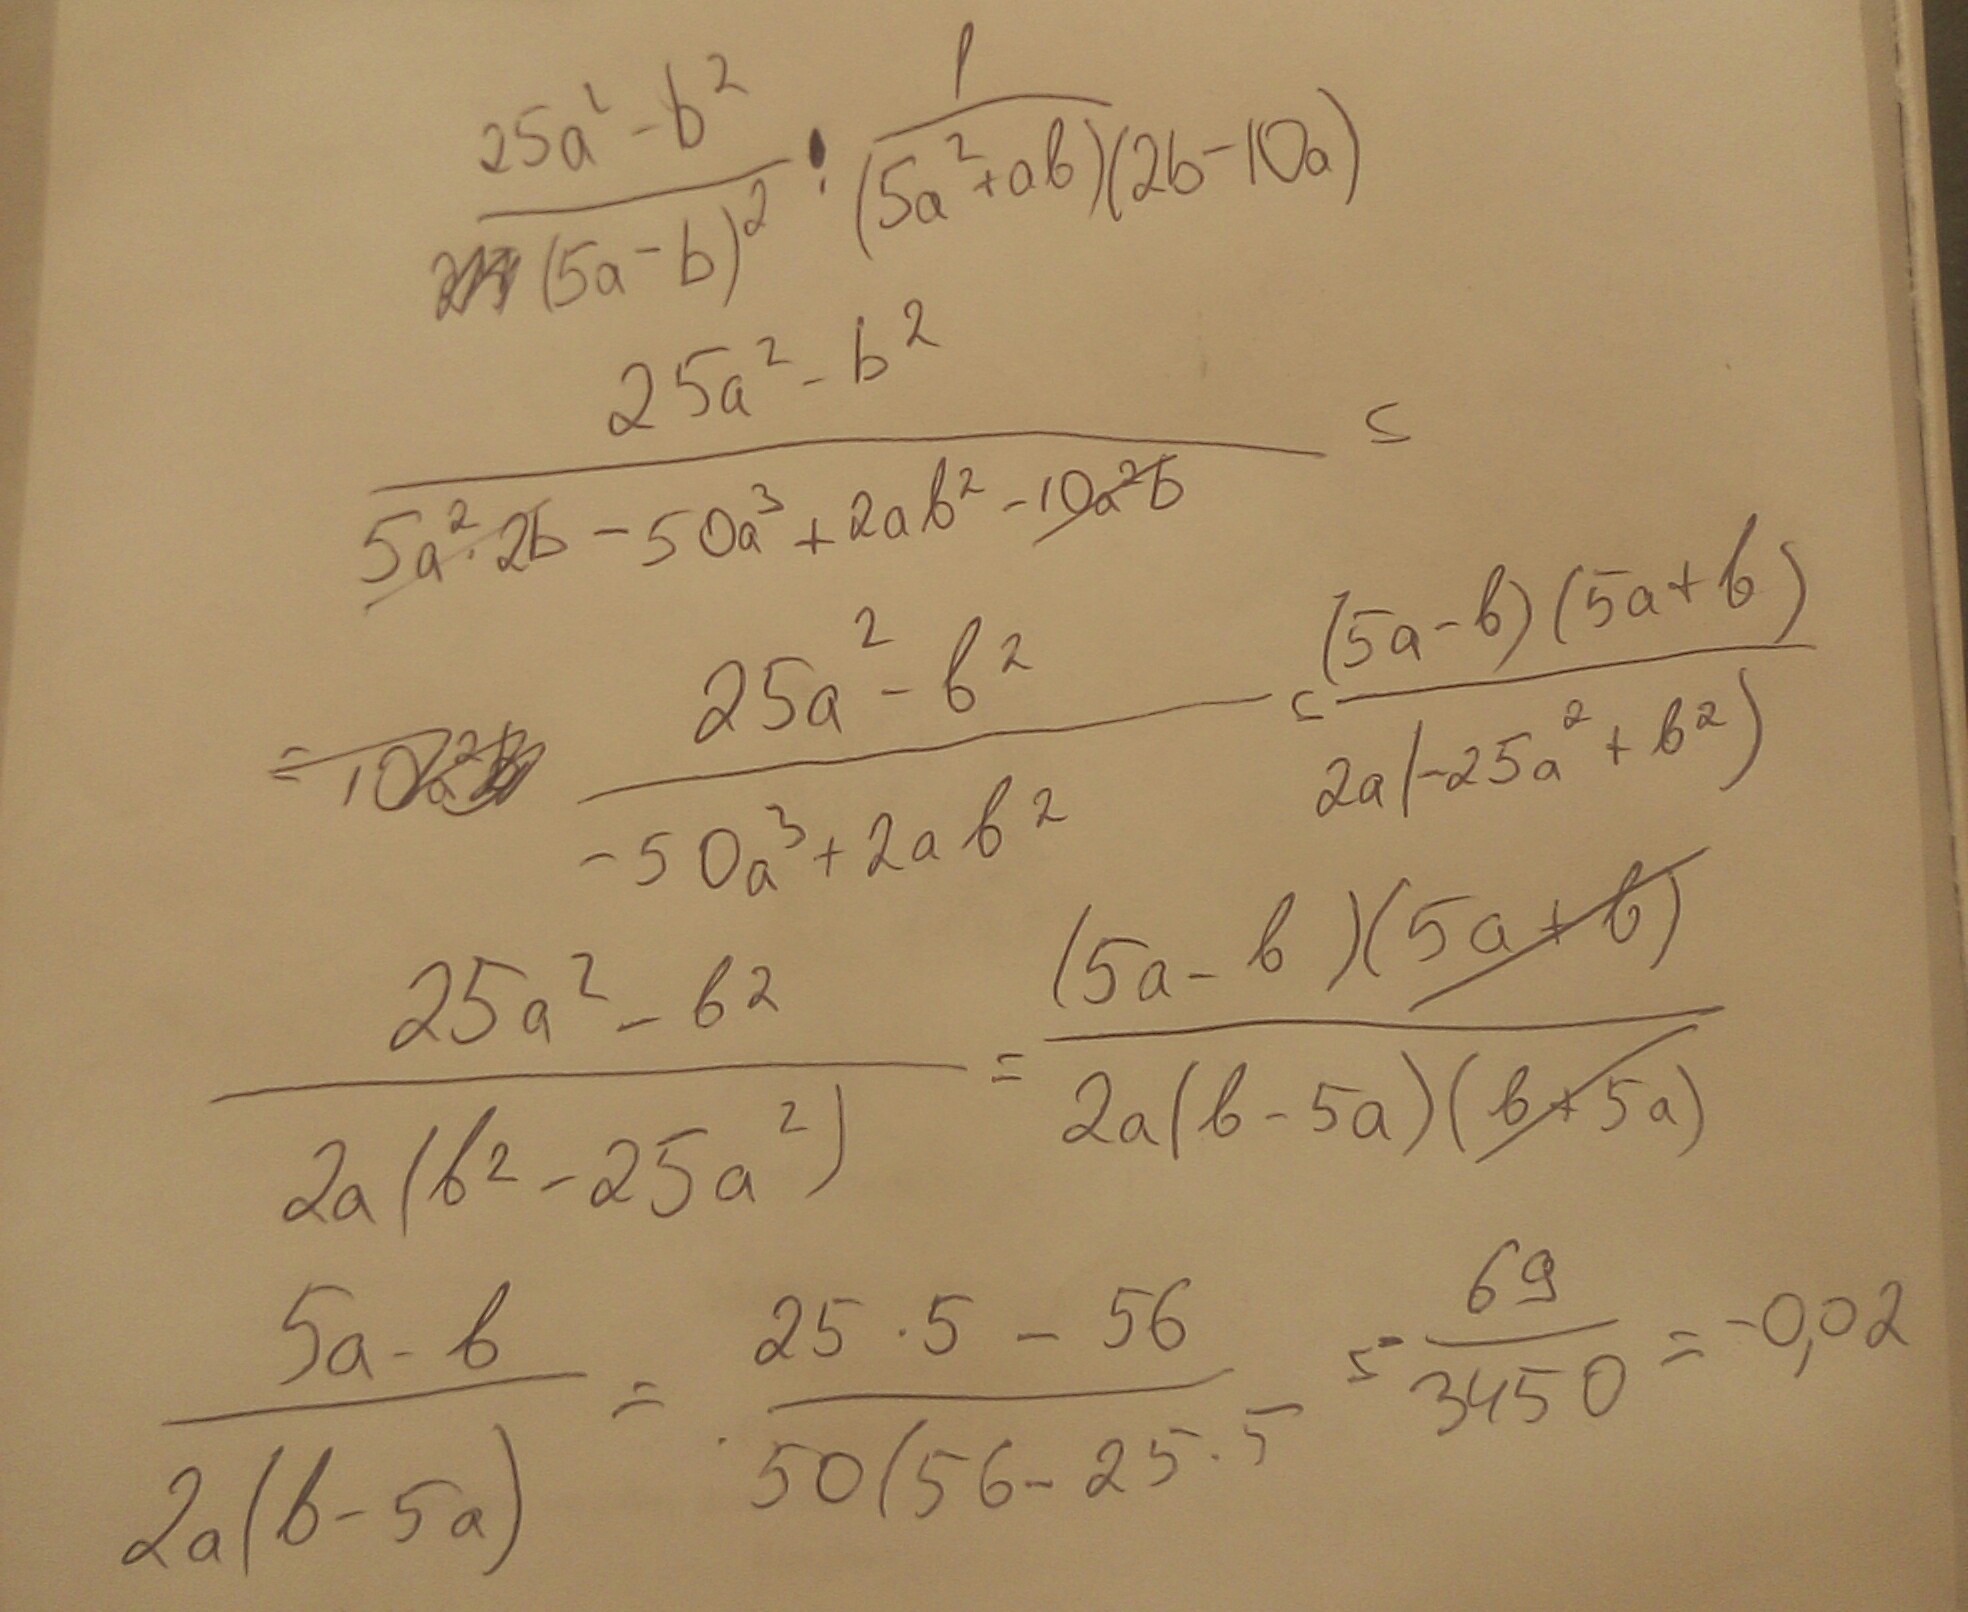 25a² - b² / (5a - b)² : 1 / (5a² + ab)(2b - 10a)
25a² - b² / 5a²·2b - 50a³ + 2ab² - 10a²b =
= 25a² - b² / -50a³ + 2ab² = (5a - b)(5a + b) / 2a(-25a² + b²)
25a² - b² / 2a(b² - 25a²) = (5a - b)(5a + b) / 2a(b - 5a)(b + 5a)
5a - b / 2a(b - 5a) = 25·5 - 56 / 50(56 - 25·5 = - 69 / 3450 = -0,02